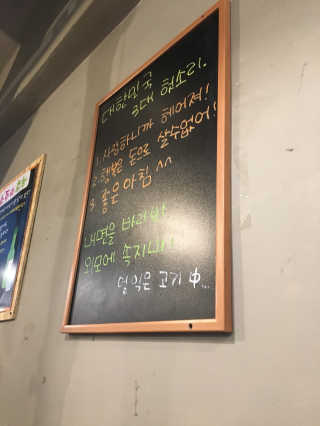 대한민국
3대 헛소리.
1. 사랑하니까 헤어져!
2. 행복은 돈으로 살수없어!
3. 좋은아침 ^^
내면을 바라봐
외모에 속지마!!
덜 익은 고기 中...